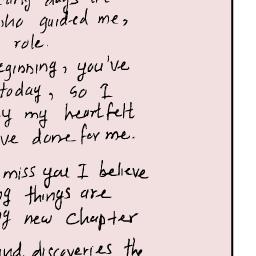 days
who guided me,
role.
eginning, you've
today, so I
y my heartfelt
ve done for me.
miss you I believe
g things are
g new chapter
and discoveries the